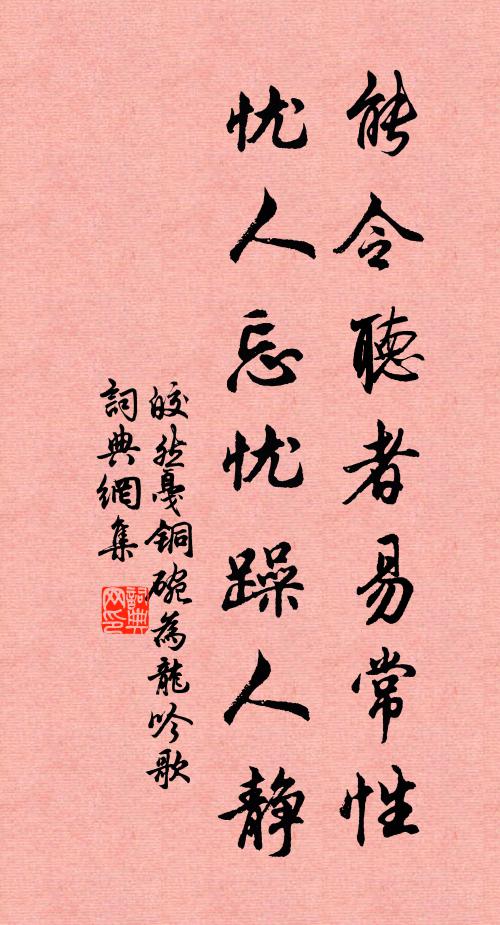 能令聽者易常性
忧人忘忧躁人静
皎然戛铜碗為龍吟歌
詞典網集
詞典
网印